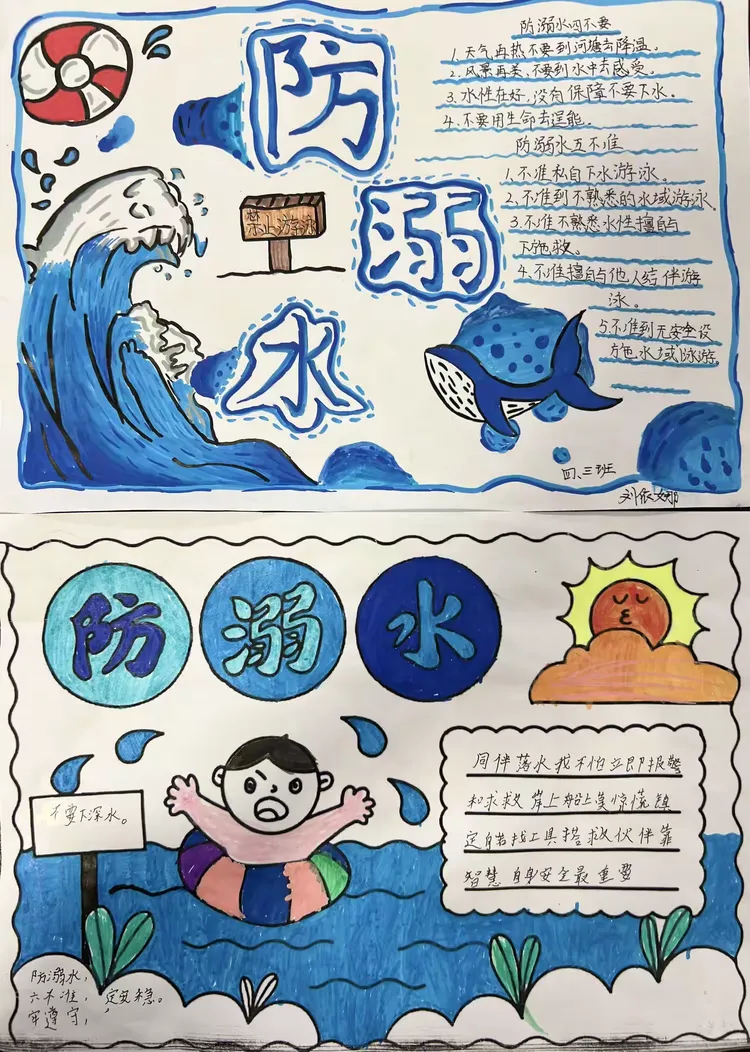 防溺水
禁止游泳
防溺水四不要
1.天气再热不要到河塘去降温。
2.风景再美,不要到水中去感受。
3.水性在好,没有保障不要下水。
4.不要用生命去逞能。
防溺水五不准
1.不准私自下水游泳。
2.不准到不熟悉的水域游泳
3.不准不熟悉水性擅自与
下施救。
4.不准擅自与他人结伴游
泳。
5.不准到无安全设
施水域游
四、三班
刘依娜
防溺水
不要下深水。
同伴落水我不怕立即报警
和求救岸上船上莫惊慌镇
定自若找工具搭救伙伴靠
智慧 自身安全最重要
防溺水,
六不准, 定安稳。
牢遵守,